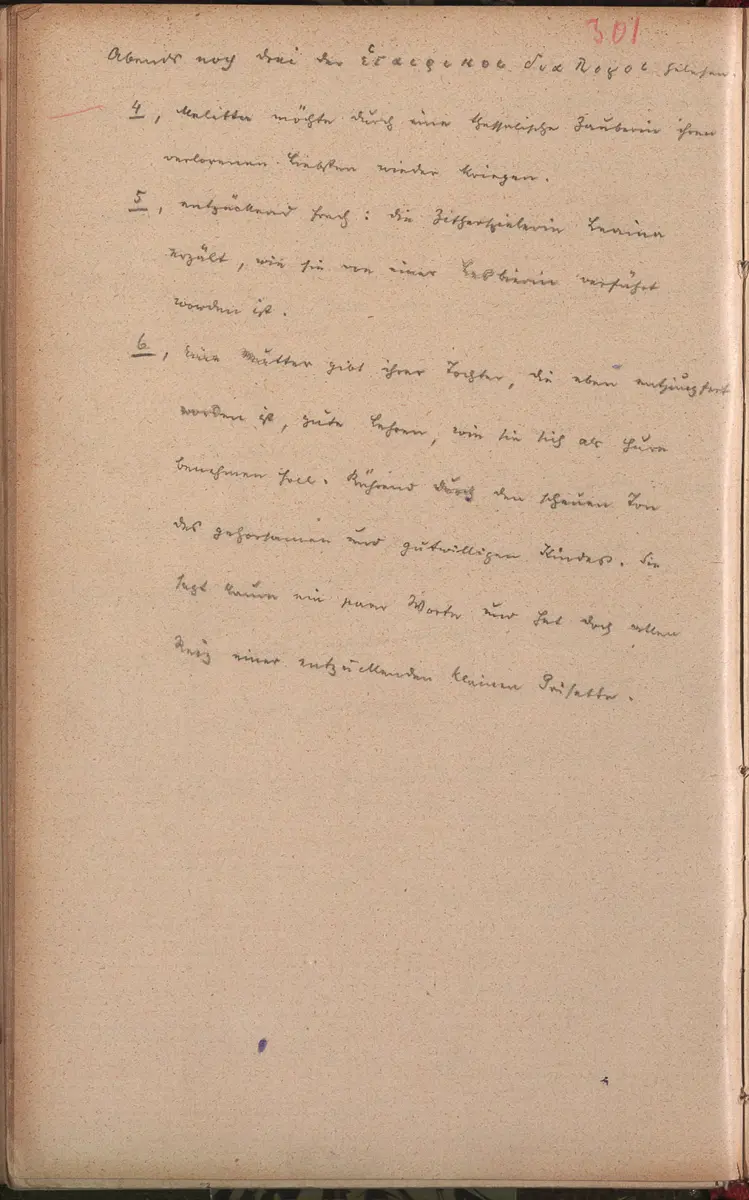 301
Abends noch drei der Ἑταιρικοι διαλογοι gelesen.
4, Melitta möchte durch eine thessalische Zauberin ihren
verlorenen Liebsten wieder kriegen.
5, entzückend frech: die Zitherspielerin Leaina
erzält, wie sie von einer Lesbierin verführt
worden ist.
6, Eine Mutter gibt ihrer Tochter, die eben entjungfert
worden ist, gute Lehren, wie sie sich als Hure
benehmen soll. Rührend durch den scheuen Ton
des gehorsamen und gutwilligen Kindes. Sie
sagt kaum ein paar Worte und hat doch allen
Reiz einer entzückenden kleinen Grisette.